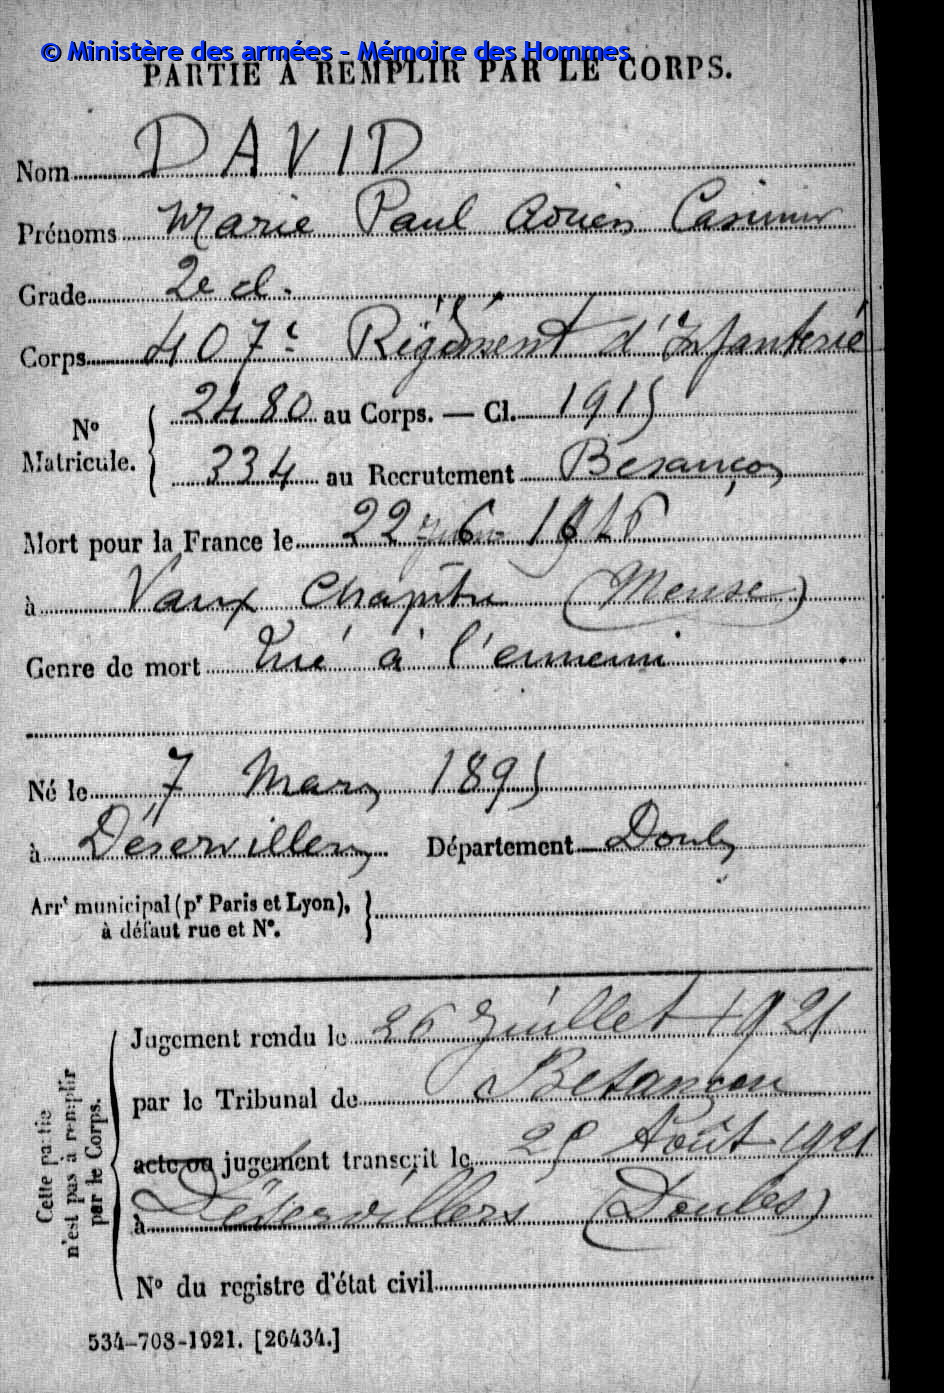 © Ministère des armées - Mémoire des Hommes
PARTIE À REMPLIR PAR LE CORPS.
Nom DAVID
Prénoms Marie Paul Adrien Casimir
Grade 2e cl.
Corps 407e Régiment d'Infanterie
N° Matricule. 2480 au Corps. — Cl. 1915
334 au Recrutement Besançon
Mort pour la France le 22 6 1916
à Vaux Chapitre (Meuse)
Genre de mort tué à l'ennemi
Né le 7 Mars 1895
à Déservillers Département Doubs
Arrt municipal (pr Paris et Lyon),
à défaut rue et N°.
Cette partie
n'est pas à remplir
par le Corps.
Jugement rendu le 26 Juillet 1921
par le Tribunal de Besançon
acte ou jugement transcrit le 25 Août 1921
à Déservillers (Doubs)
N° du registre d'état civil
534-708-1921. [26434.]